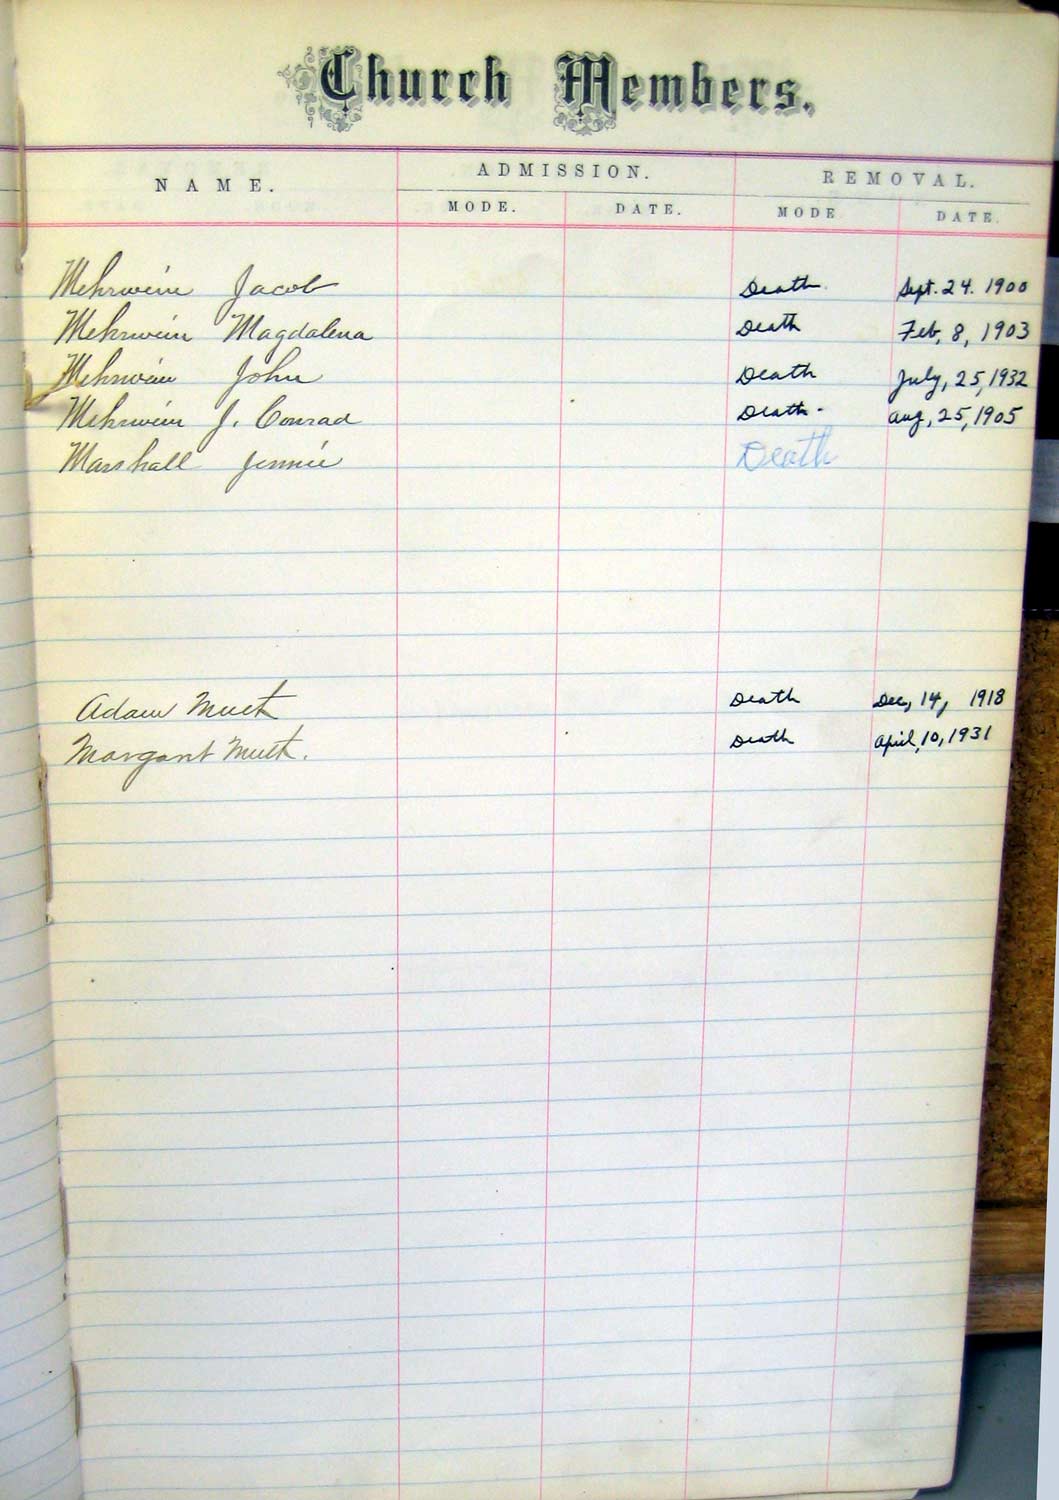 Church Members.
NAME. ADMISSION. REMOVAL.
MODE. DATE. MODE DATE.
Mehrwein Jacob Death. Sept. 24. 1900
Mehrwein Magdalena Death Feb, 8, 1903
Mehrwein John Death July, 25, 1932
Mehrwein J. Conrad Death. Aug, 25, 1905
Marshall Jennie Death
Adam Muth Death Dec, 14, 1918
Margaret Muth. Death April, 10, 1931